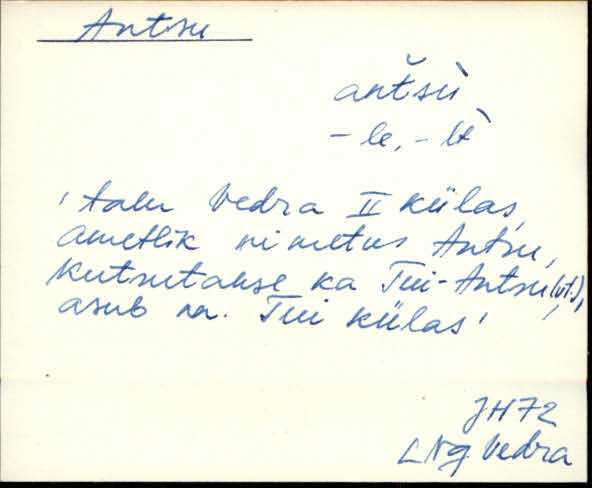 Antsu
antšù
-le, -lt
' talu Vedra II külas,
ametlik nimetus Antsu,
kutsutakse ka Tui-Antsu (vt.),
asub nn. Tui külas '
JH72
LNg Vedra